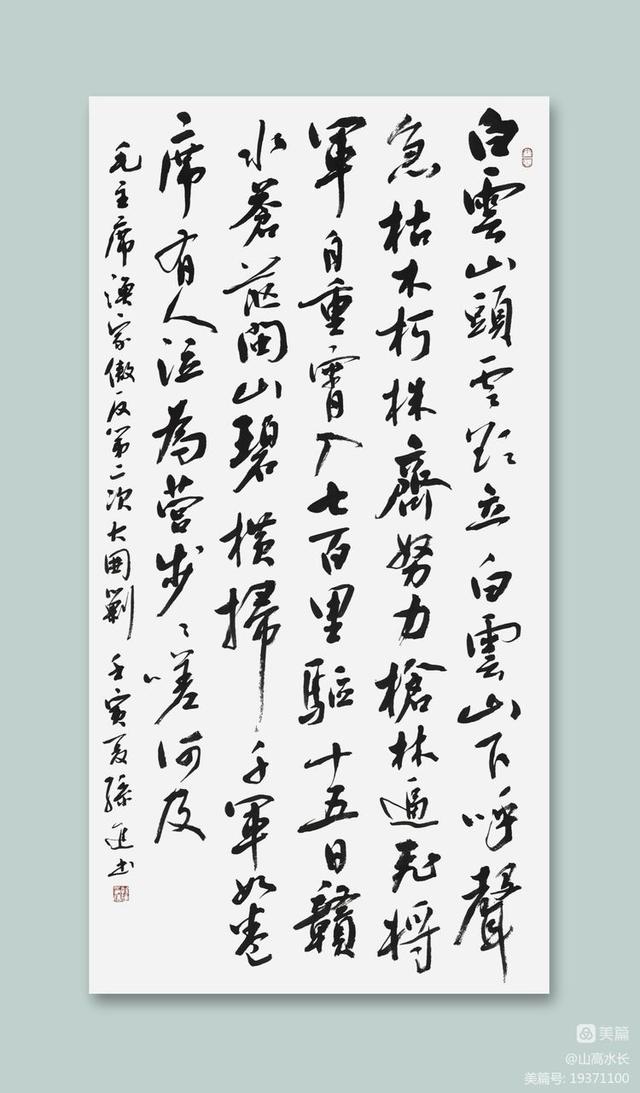 白雲山頭云欲立白雲山下呼聲
急枯木朽株齊努力槍林逼飛將
軍自重霄入七百里驅十五日贛
水蒼茫閩山碧橫掃千軍如卷
席有人泣為營步々嗟何及
毛主席漁家傲反第二次大圍剿 壬寅夏孫進书
美篇
@山高水长
美篇号: 19371100